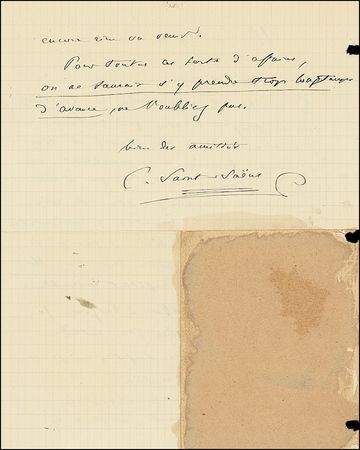 encore rien vu venir.
Pour toutes ces sortes d'affaires,
on ne saurait s'y prendre trop longtemps
d'avance, ne l'oubliez pas.
bien des amitiés
C. Saint-Saëns